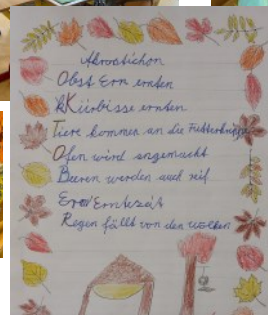 Akrostichon
Obst Ern ernten
Kürbisse ernten
Tiere kommen an die Futterkrippe
Ofen wird angemacht
Beeren werden auch reif
Erntezeit
Regen fällt von den Wolken